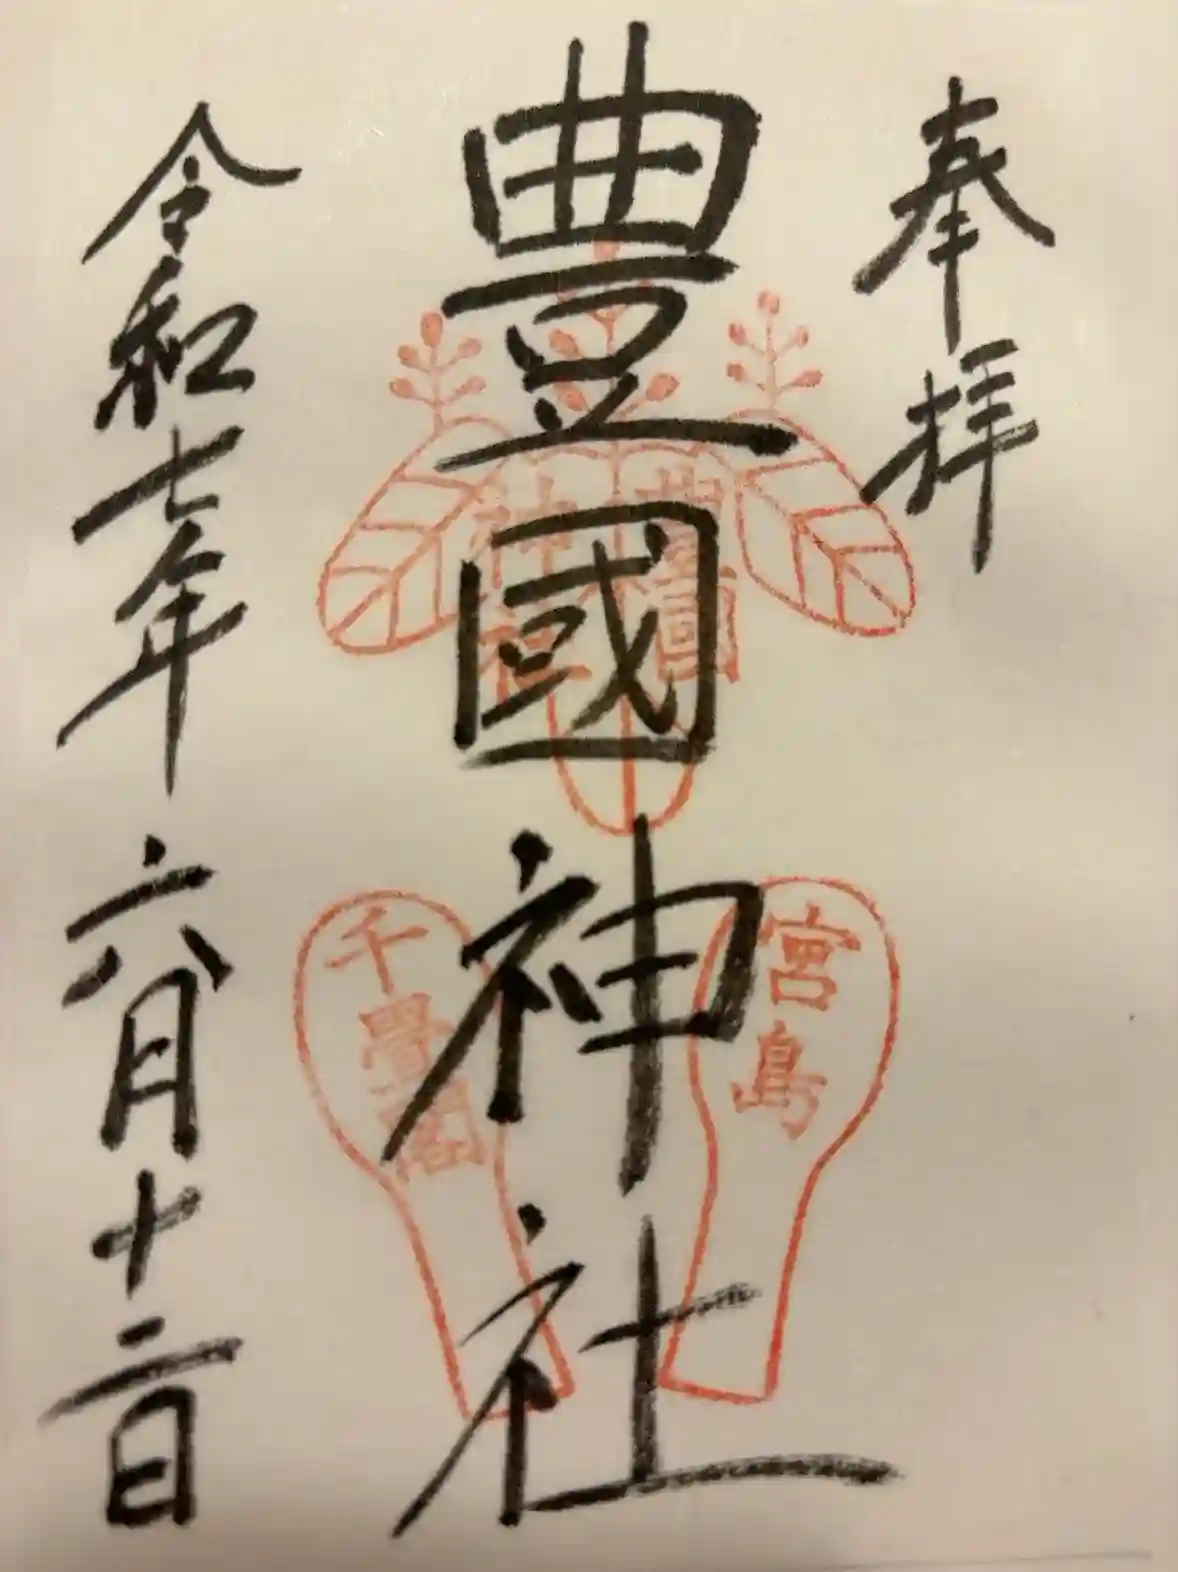 奉拝
豊國神社
令和七年六月十二日
豊國
神社
宮島
千畳閣